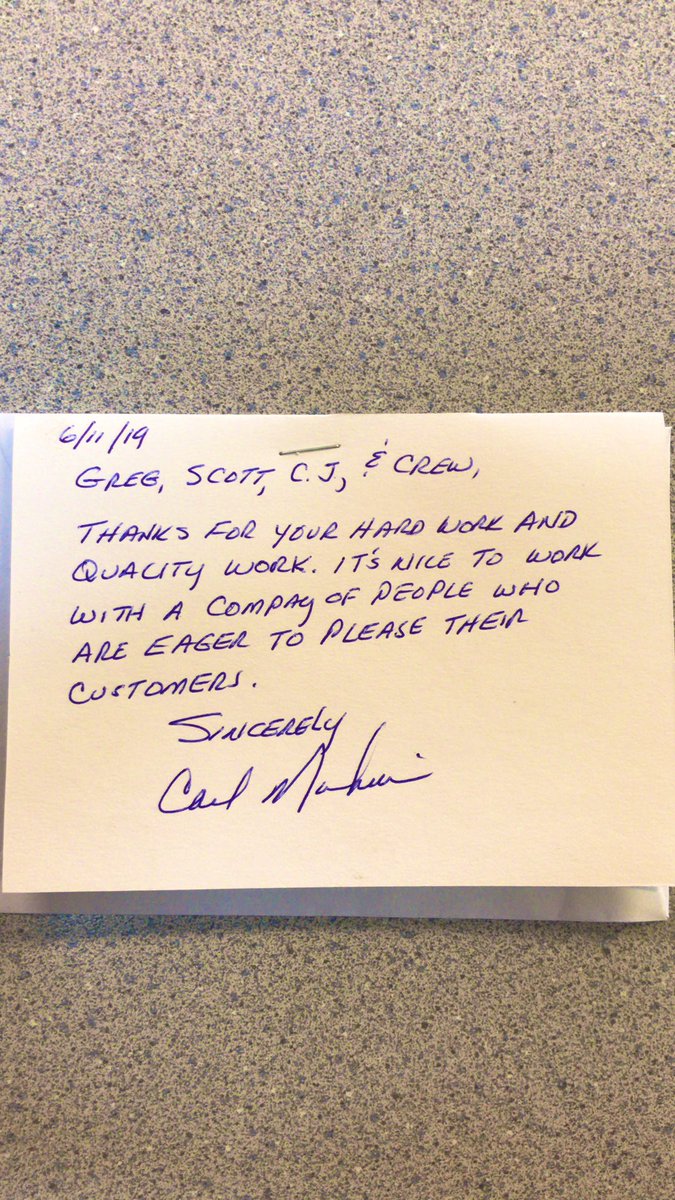 6/11/19
GREG, SCOTT, C.J, & CREW,
THANKS FOR YOUR HARD WORK AND
QUALITY WORK. IT'S NICE TO WORK
WITH A COMPAY OF PEOPLE WHO
ARE EAGER TO PLEASE THEIR
CUSTOMERS.
SINCERELY
Carl